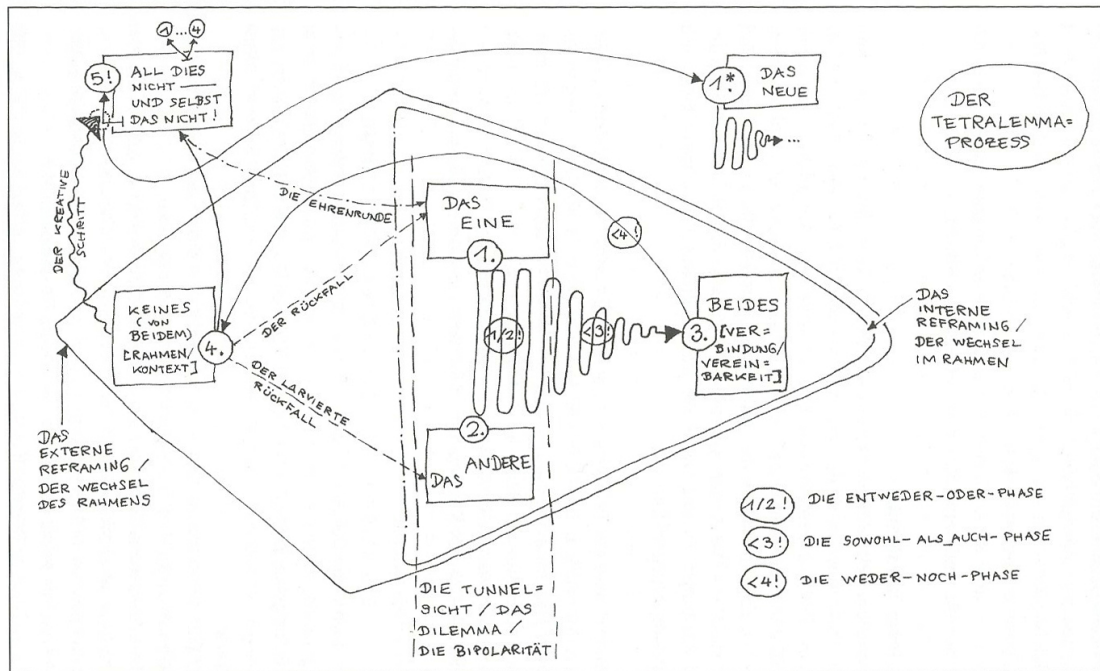 1 ... 4
5!
ALL DIES
NICHT —
UND SELBST
DAS NICHT!
1.*
DAS
NEUE
...
DER
TETRALEMMA=
PROZESS
DER KREATIVE
SCHRITT
DIE EHRENRUNDE
DAS
EINE
1.
<4!
DER RÜCKFALL
KEINES
(VON
BEIDEM)
[RAHMEN/
KONTEXT]
4.
1/2!
<3!
3.
BEIDES
[VER=
BINDUNG/
VEREIN=
BARKEIT]
DAS
INTERNE
REFRAMING /
DER WECHSEL
IM RAHMEN
DER LARVIERTE
RÜCKFALL
2.
DAS ANDERE
DAS
EXTERNE
REFRAMING /
DER WECHSEL
DES RAHMENS
DIE TUNNEL=
SICHT / DAS
DILEMMA /
DIE BIPOLARITÄT
1/2! DIE ENTWEDER-ODER-PHASE
<3! DIE SOWOHL-ALS_AUCH-PHASE
<4! DIE WEDER-NOCH-PHASE